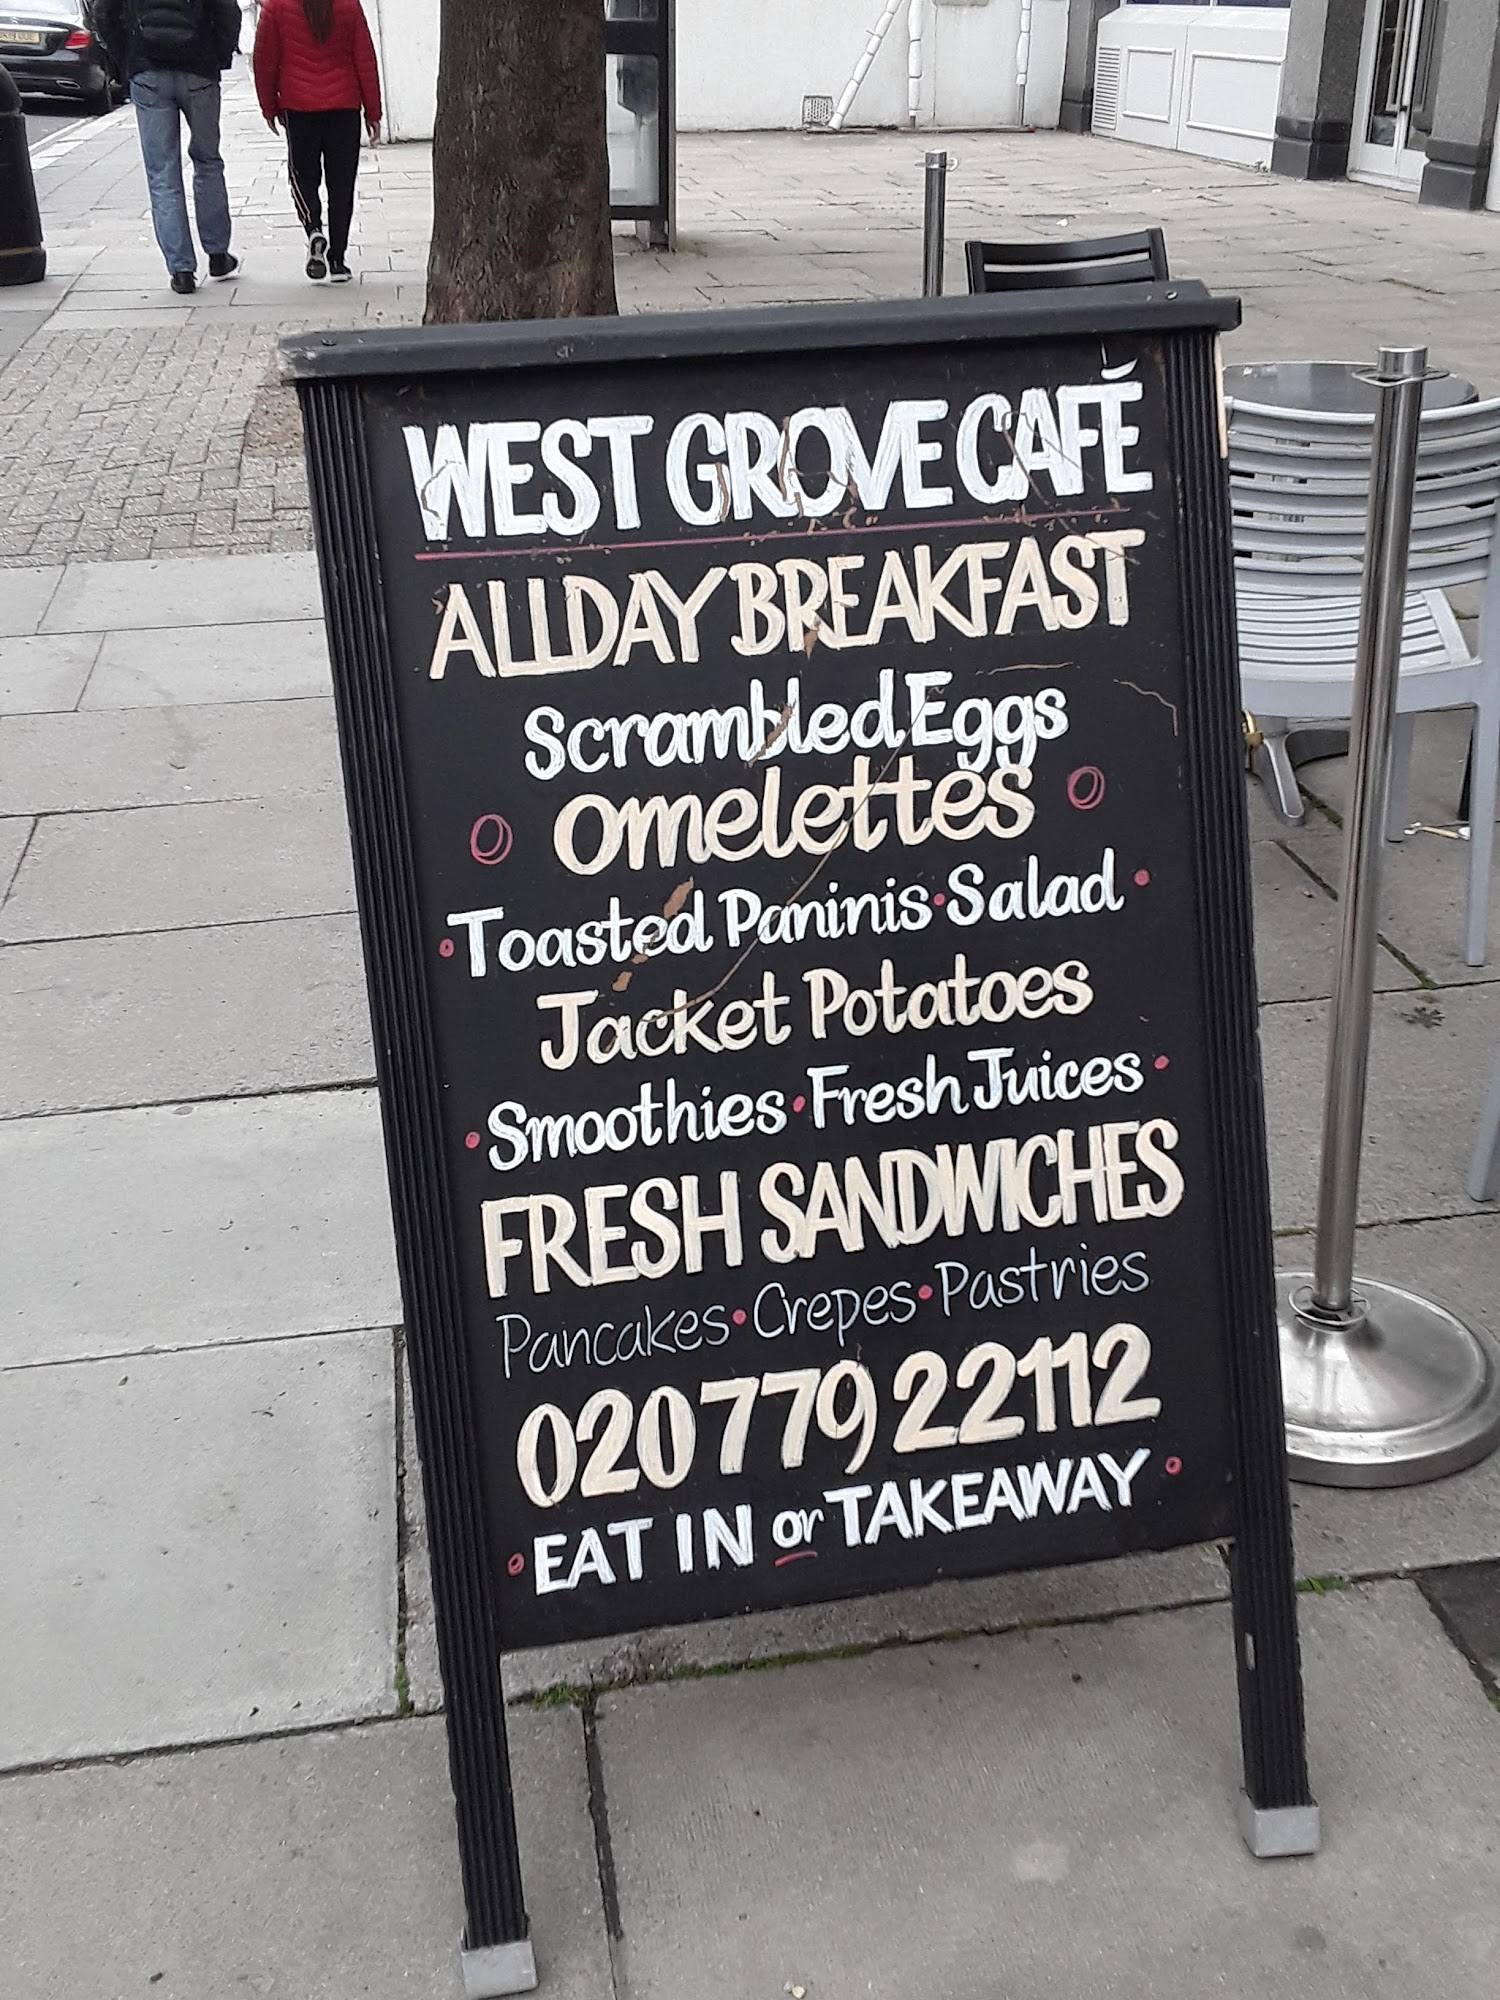 WEST GROVE CAFÉ
ALL DAY BREAKFAST
Scrambled Eggs
Omelettes
• Toasted Paninis • Salad •
Jacket Potatoes
• Smoothies • Fresh Juices •
FRESH SANDWICHES
Pancakes • Crepes • Pastries
020 779 22112
• EAT IN or TAKEAWAY •